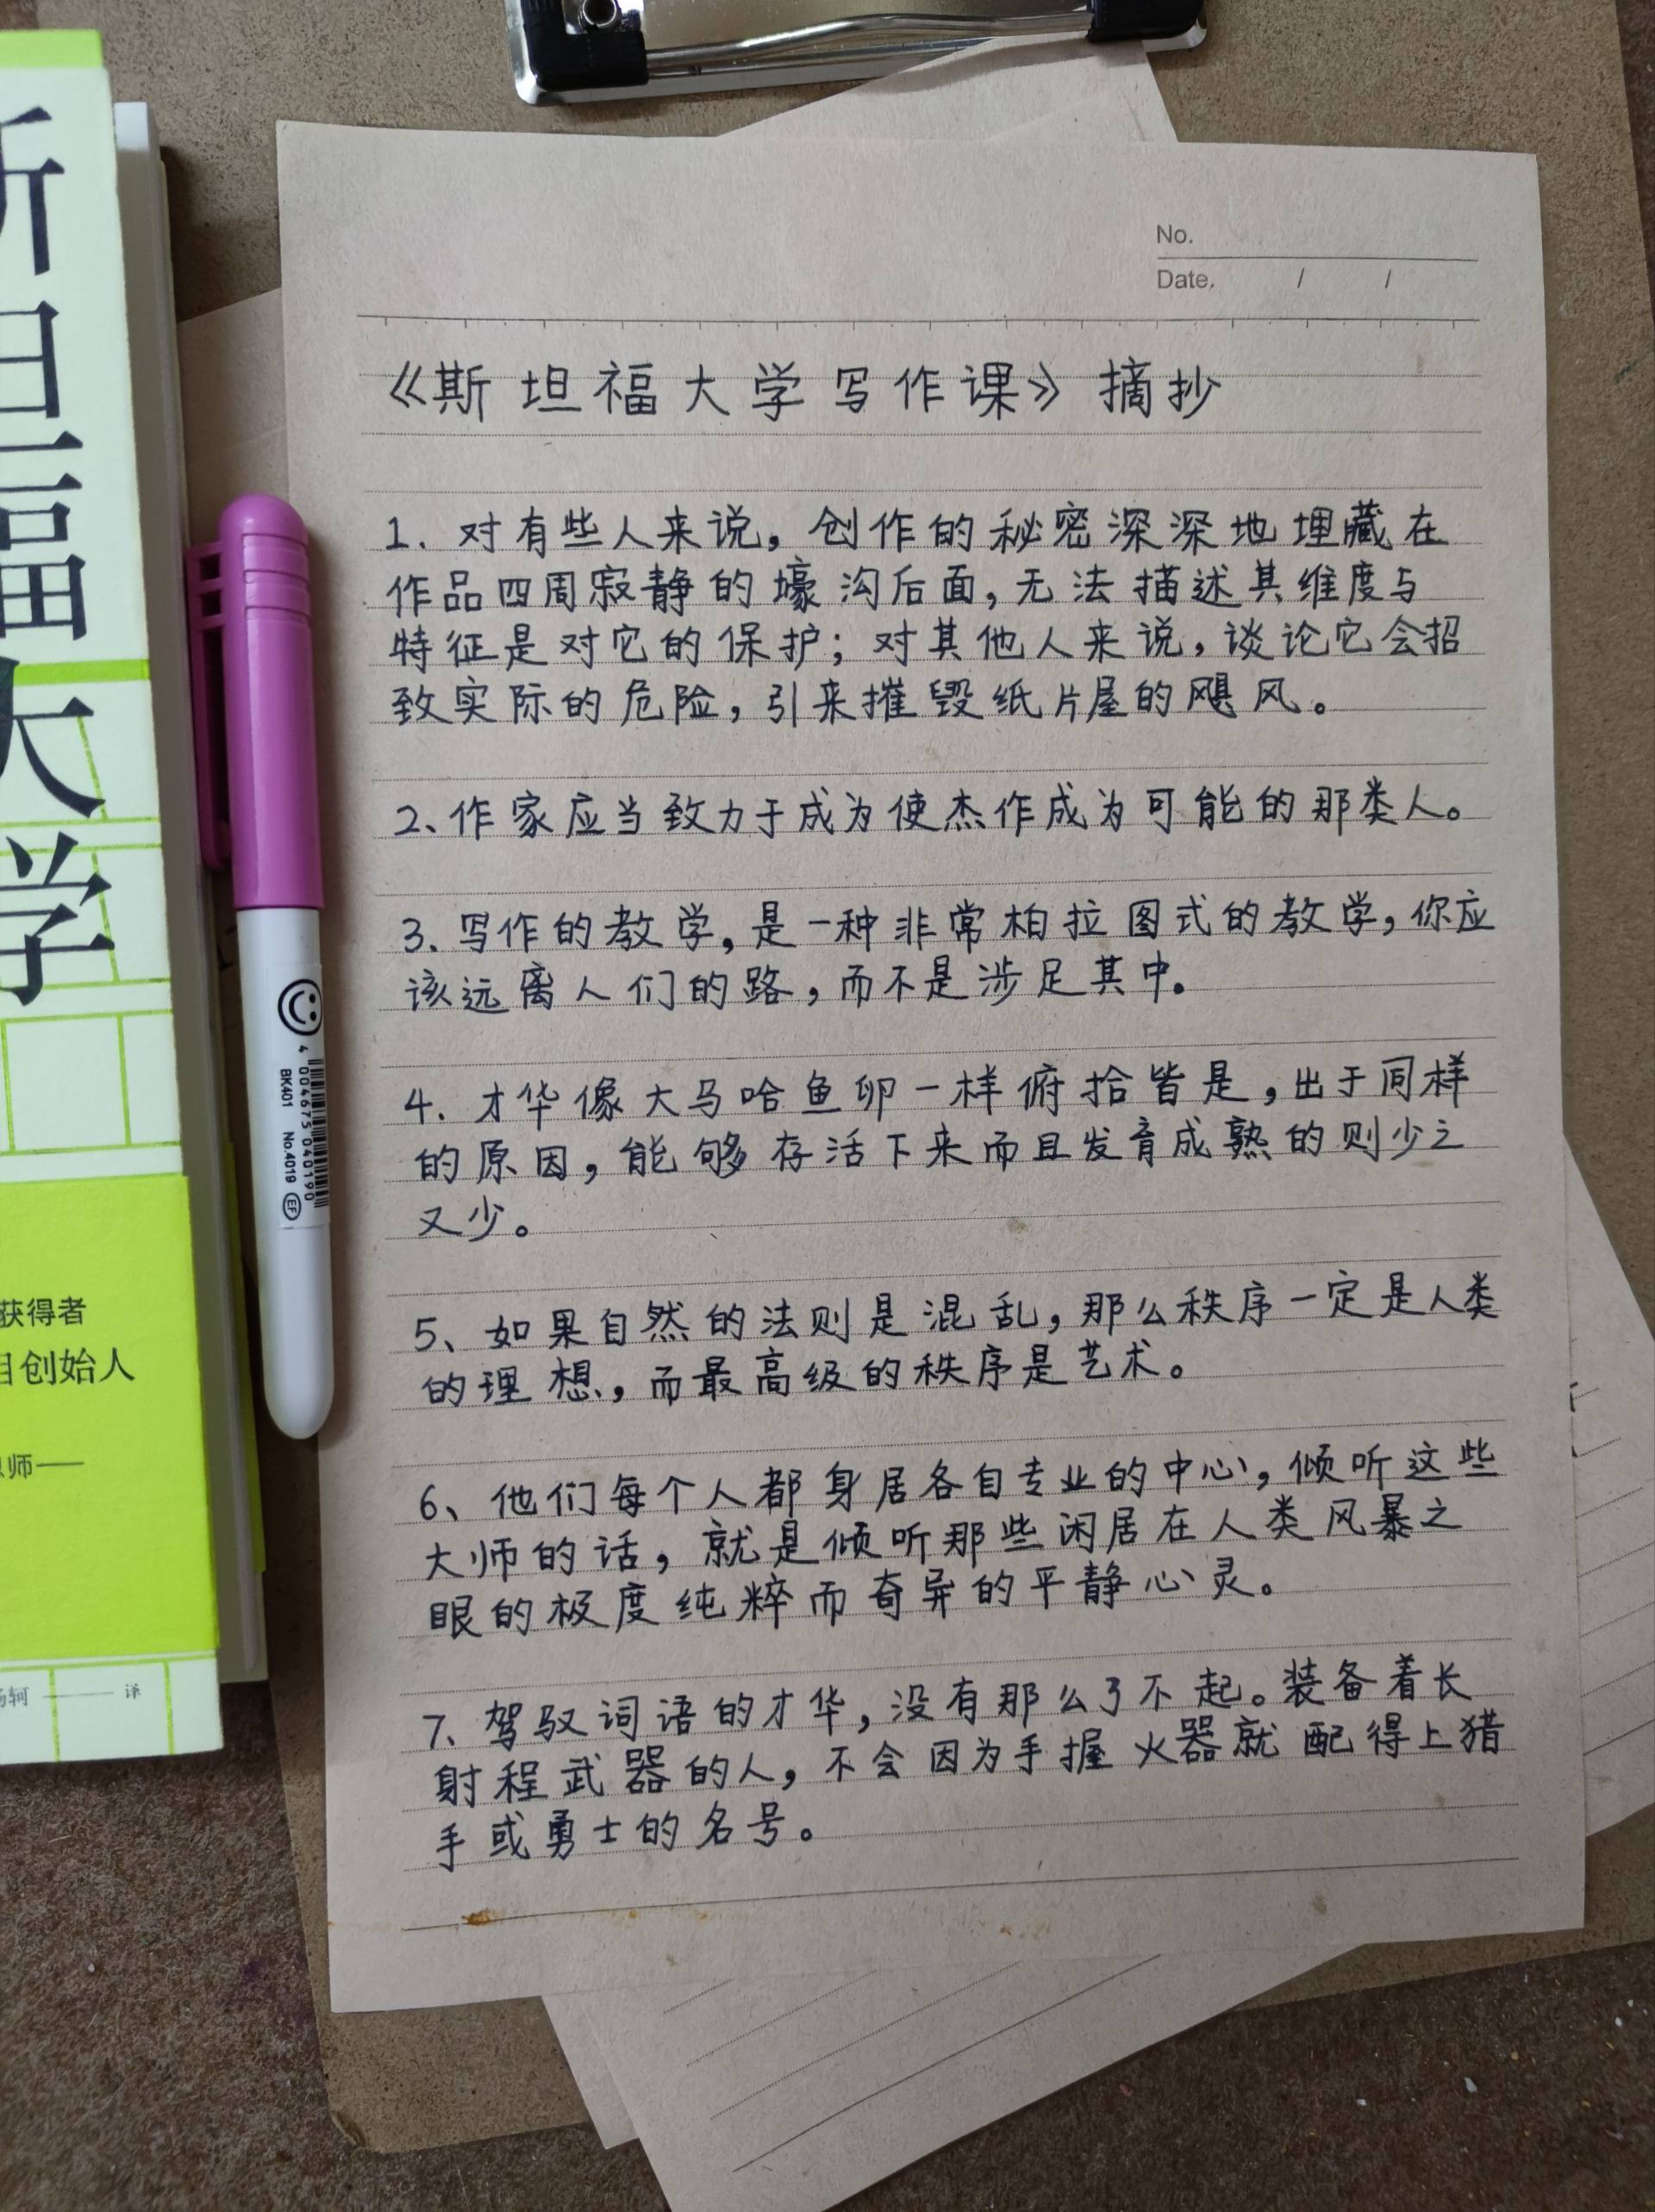 No.
Date. / /
《斯坦福大学写作课》摘抄
1. 对有些人来说，创作的秘密深深地埋藏在
作品四周寂静的壕沟后面，无法描述其维度与
特征是对它的保护；对其他人来说，谈论它会招
致实际的危险，引来摧毁纸片屋的飓风。
2、作家应当致力于成为使杰作成为可能的那类人。
3. 写作的教学，是一种非常柏拉图式的教学，你应
该远离人们的路，而不是涉足其中。
4. 才华像大马哈鱼卵一样俯拾皆是，出于同样
的原因，能够存活下来而且发育成熟的则少之
又少。
5、如果自然的法则是混乱，那么秩序一定是人类
的理想，而最高级的秩序是艺术。
6、他们每个人都身居各自专业的中心，倾听这些
大师的话，就是倾听那些闲居在人类风暴之
眼的极度纯粹而奇异的平静心灵。
7、驾驭词语的才华，没有那么了不起。装备着长
射程武器的人，不会因为手握火器就配得上猎
手或勇士的名号。
斯坦福大学
获得者
目创始人
师——
轲 —— 译
4 004675 040190
BK401 No.4019 EF